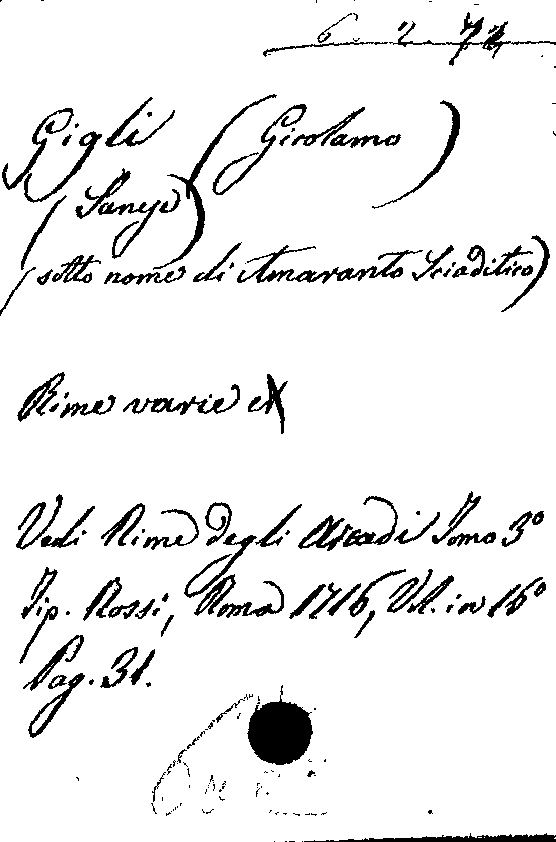 6 2 72
Gigli (Girolamo)
(Sanese)
(sotto nome di Amaranto Sciaditico)
Rime varie
Vedi Rime degli Arcadi Tomo 3º
Tip. Rossi, Roma 1716, Vol. in 16º
Pag. 31.